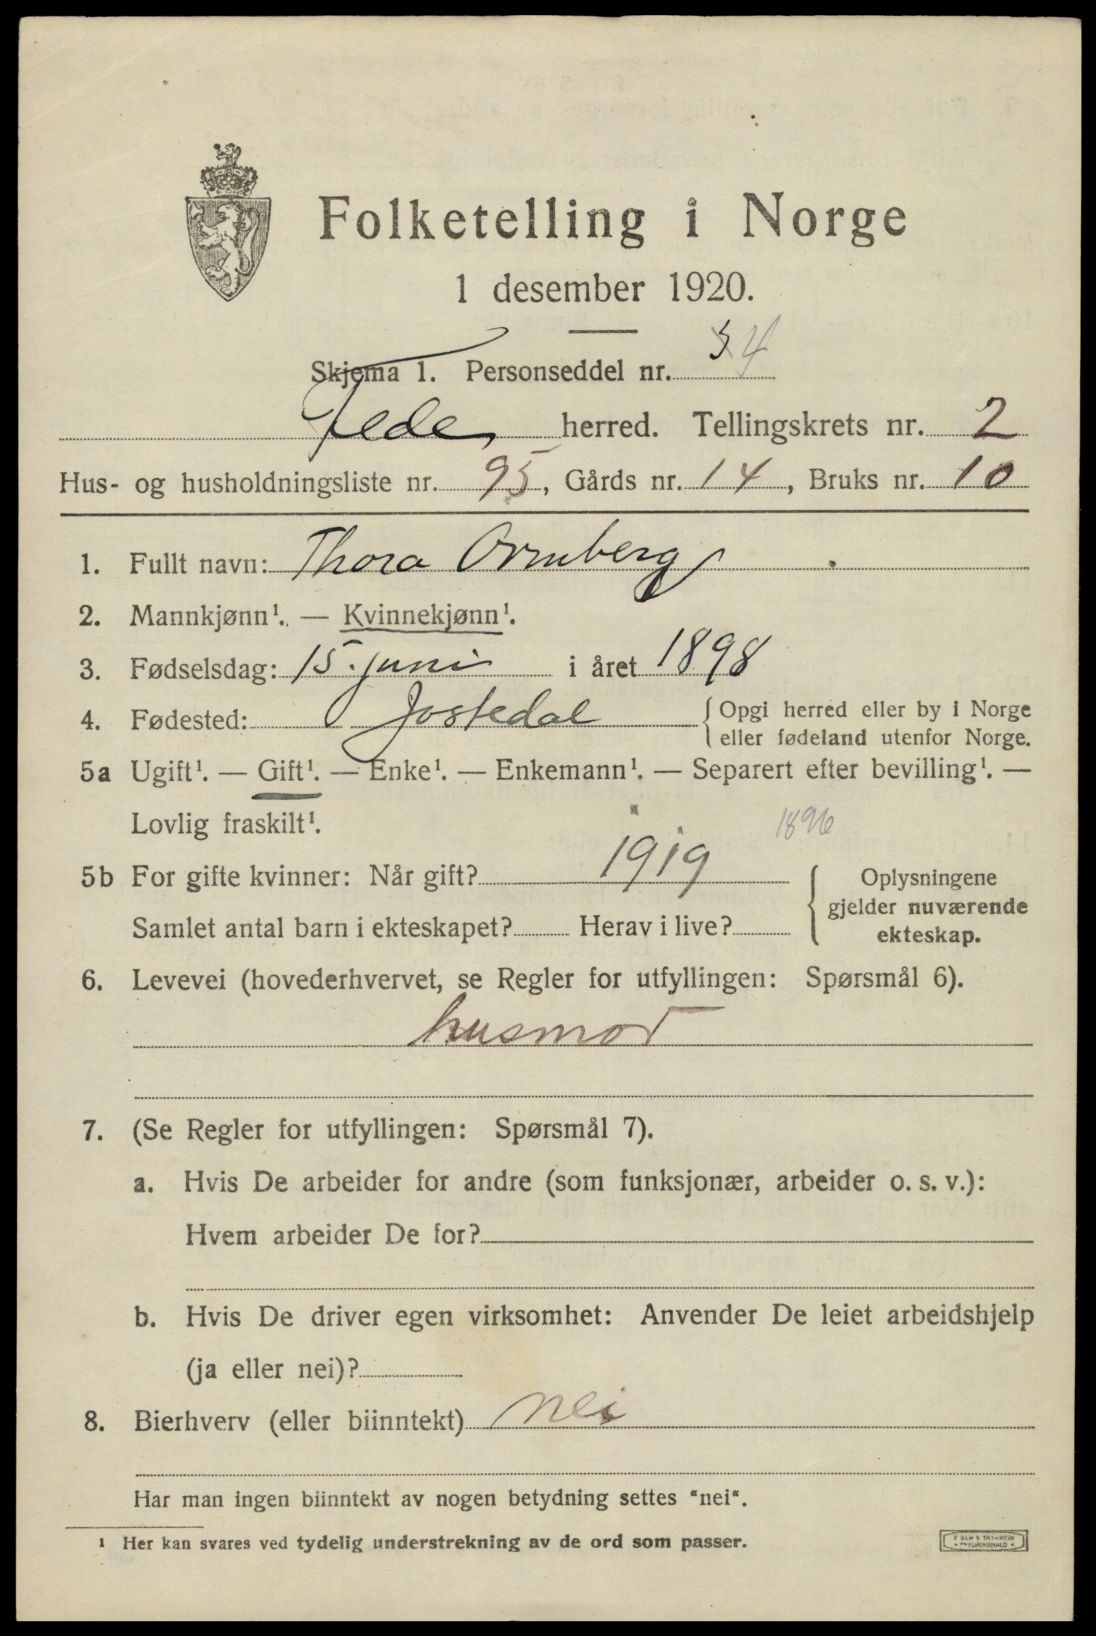 Folketelling i Norge
1 desember 1920.
Skjema 1. Personseddel nr. 34
Feda herred. Tellingskrets nr. 2
Hus- og husholdningsliste nr. 95, Gårds nr. 14, Bruks nr. 10
1. Fullt navn: Thora Ormberg
2. Mannkjønn¹. — Kvinnekjønn¹.
3. Fødselsdag: 15. juni i året 1898
4. Fødested: Jostedal {Opgi herred eller by i Norge
eller fødeland utenfor Norge.
5a Ugift¹. — Gift¹. — Enke¹. — Enkemann¹. — Separert efter bevilling¹. —
Lovlig fraskilt¹.
1896
5b For gifte kvinner: Når gift? 1919 { Oplysningene
gjelder nuværende
Samlet antal barn i ekteskapet? Herav i live? ekteskap.
6. Levevei (hovederhvervet, se Regler for utfyllingen: Spørsmål 6).
husmor
7. (Se Regler for utfyllingen: Spørsmål 7).
a. Hvis De arbeider for andre (som funksjonær, arbeider o. s. v.):
Hvem arbeider De for?
b. Hvis De driver egen virksomhet: Anvender De leiet arbeidshjelp
(ja eller nei)?
8. Bierhverv (eller biinntekt) nei
Har man ingen biinntekt av nogen betydning settes "nei".
¹ Her kan svares ved tydelig understrekning av de ord som passer.